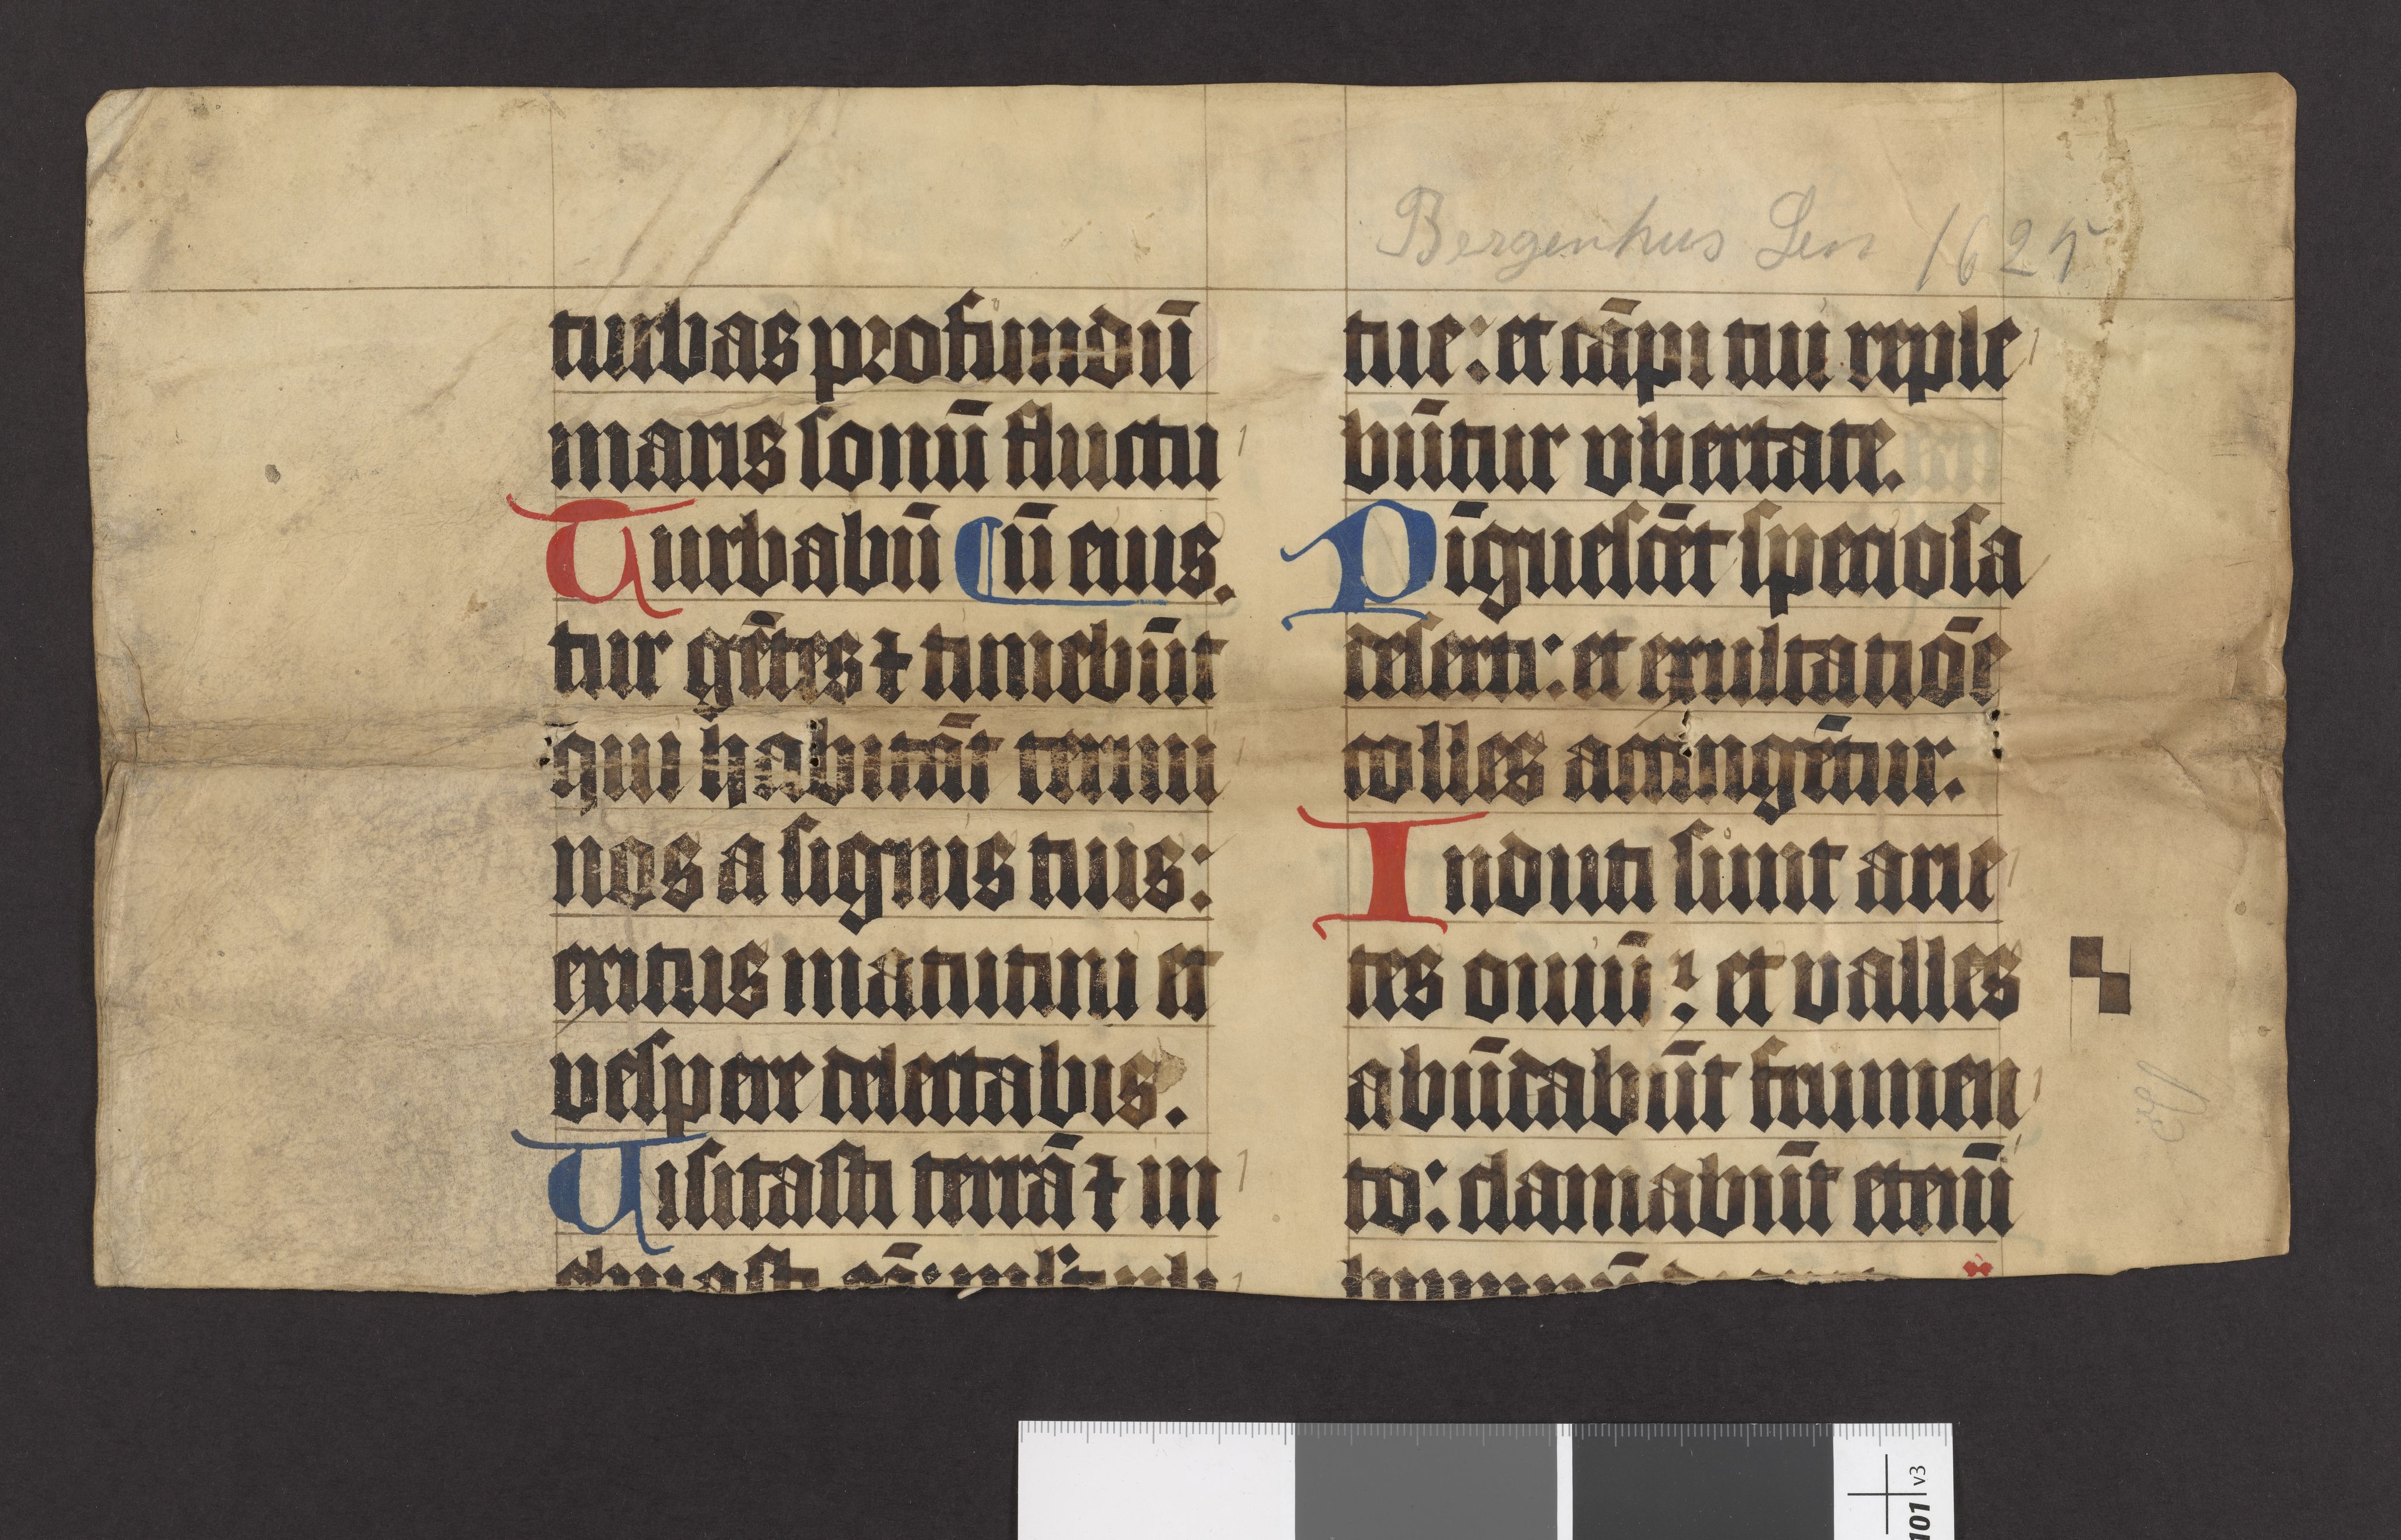 Bergenhus Len 1625
turbas profundū
maris sonū fluctu
Turbabū ūeius.
tur gētes ⁊ timebūt
qui habitāt termi
nos a signis tuis:
exitus matutini et
vespere delectabis.
Uisitasti terrā ⁊ in
tue: et cāpi tui reple
būtur vbertate.
Pīguescēt speciosa
deserti: et exultatiōe
colles accingētur.
Induti sunt arie
tes ouiū: et valles
abūdabūt frumen
to: clamabūt etenī
101 v3